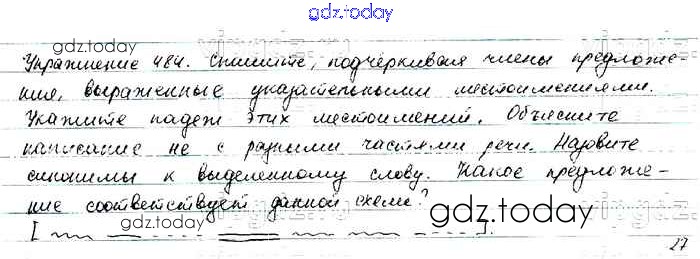 gdz.today
gdz.today
gdz.today
Упражнение 484. Спишите, подчёркивая члены предложе-
ния, выраженные указательными местоимениями.
Укажите падеж этих местоимений. Объясните
написание не с разными частями речи. Назовите
синонимы к выделенному слову. Какое предложе-
ние соответствует данной схеме?
gdz.today
gdz.today
[ ].
27